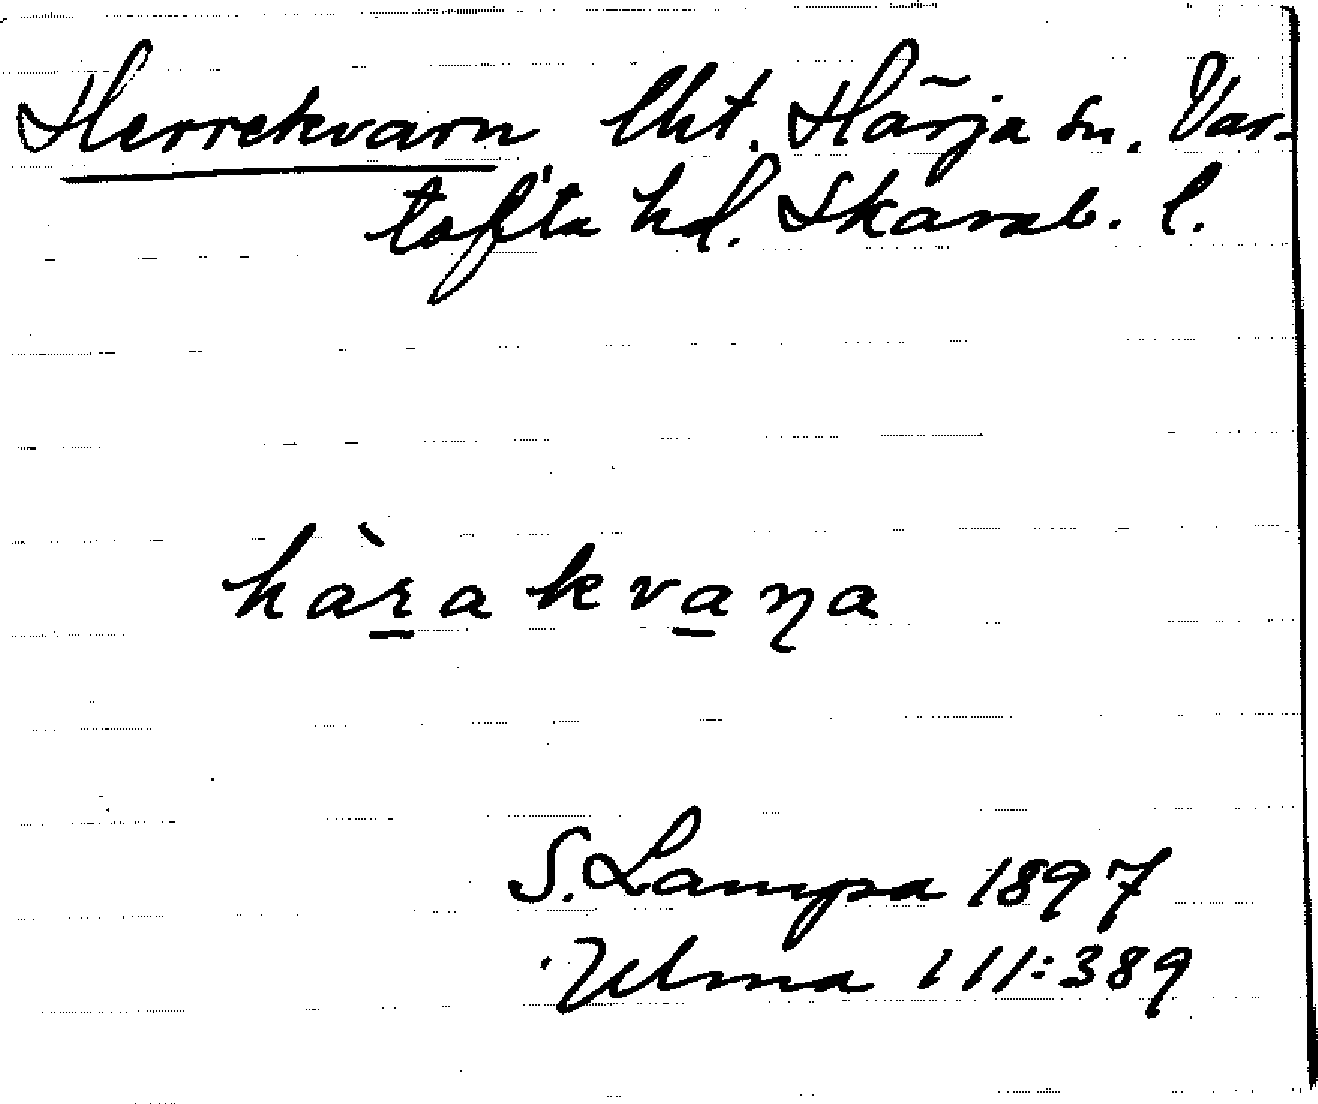 Herrekvarn lht. Härja sn. Var-
tofta hd. Skarab. l.
hàrakvaɳa
S. Lampa 1897
Ulma 111:389